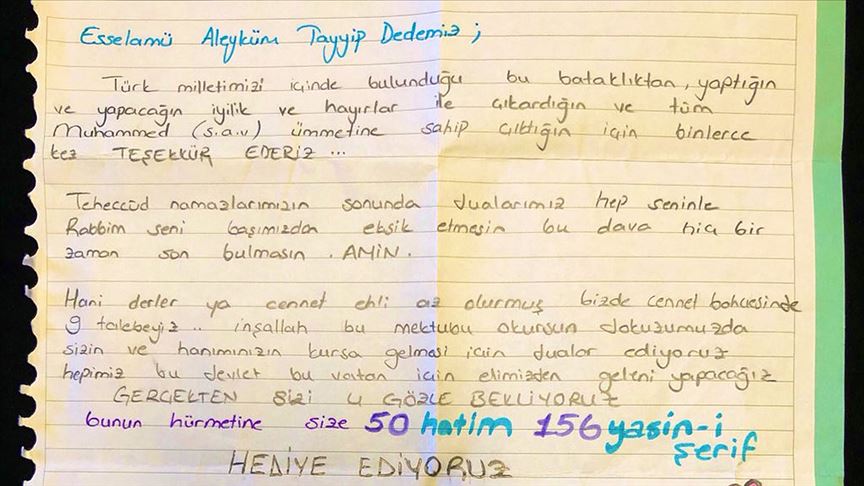 Esselamü Aleyküm Tayyip Dedemiz ;
Türk milletimizi içinde bulunduğu bu bataklıktan, yaptığın
ve yapacağın iyilik ve hayırlar ile çıkardığın ve tüm
Muhammed (s.a.v) ümmetine sahip çıktığın için binlerce
kez TEŞEKKÜR EDERİZ ...
Teheccüd namazlarımızın sonunda dualarımız hep seninle
Rabbim seni başımızdan eksik etmesin bu dava hiç bir
zaman son bulmasın . AMİN .
Hani derler ya cennet ehli az olurmuş bizde cennet bahçesinde
9 talebeyiz .. inşallah bu mektubu okursun dokuzumuzda
sizin ve hanımınızın kursa gelmesi için dualar ediyoruz
hepimiz bu devlet bu vatan için elimizden geleni yapacağız
GERÇEKTEN SİZİ 4 GÖZLE BEKLİYORUZ
bunun hürmetine size 50 hatim 156 yasin-i
şerif
HEDİYE EDİYORUZ